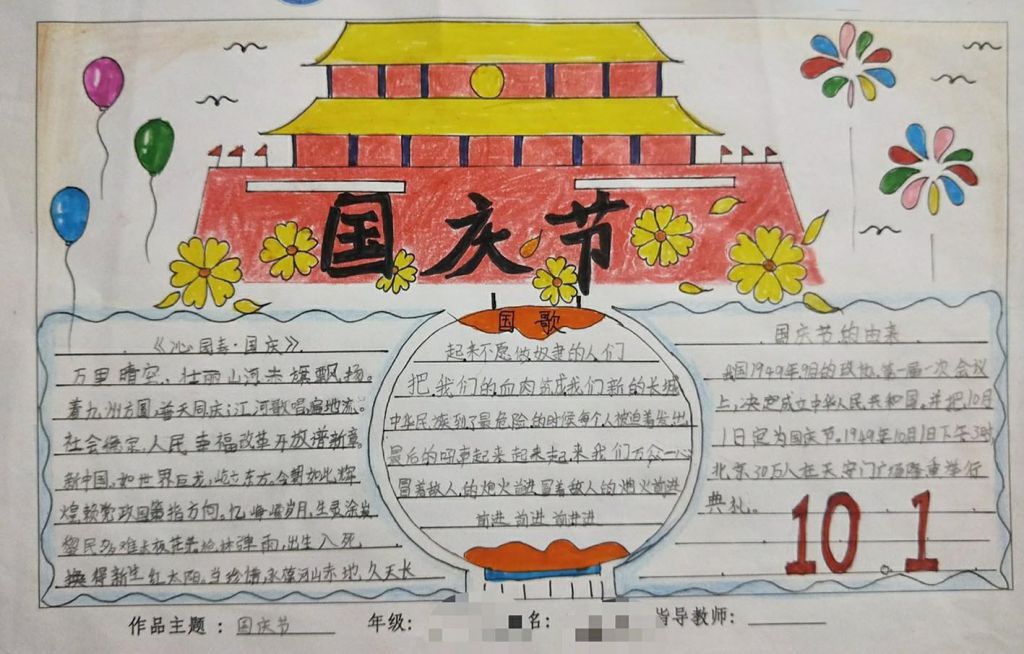 国庆节
《沁园春·国庆》
万里晴空，壮丽山河赤旗飘扬。
九州方圆，普天同庆；江河歌唱，流。
社会 人民幸福改革开放谱新章
新中国，如世界巨龙，屹立东方，今朝如此辉
煌赖党政 指方向。忆 岁月，生灵涂炭
黎民多难 弹雨，出生入死
换得新生红太阳。当珍惜，永葆河山赤地，久天长
国歌
起来不愿做奴隶的人们
把我们的血肉筑成我们新的长城
中华民族到了最危险的时候每个人被迫着发出
最后的吼声起来起来起来我们万众一心
冒着敌人的炮火前进冒着敌人的炮火前进
前进前进前进进
国庆节的由来
我国1949年9日的政协，第一届一次会议
上，决定成立中华人民共和国。并把10月
1日定为国庆节。1949年10月1日下午3时
北京30万人在天安门广场隆重举行
典礼。
10.1
作品主题：国庆节 年级： 名： 指导教师：